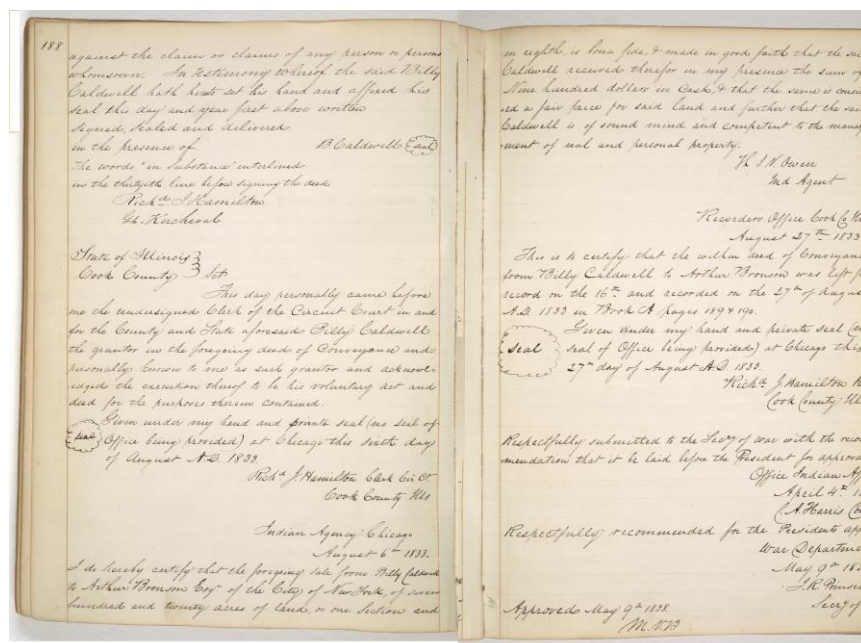 188
against the claim or claims of any person or persons
whomsoever. In testimony whereof the said Billy
Caldwell hath hereto set his hand and affixed his
seal this day and year first above written
signed, sealed and delivered
in the presence of B Caldwell seal
The words "in substance" interlined
in the thirtyeth line before signing the deed
Richd J Hamilton
Gh. Kercheval
State of Illinois
Cook County Sct
This day personally came before
me the undersigned Clerk of the Circuit Court in and
for the County and State aforesaid Billy Caldwell
the grantor in the foregoing deed of Conveyance and
personally known to me as such grantor and acknowl-
edged the execution thereof to be his voluntary act and
deed for the purposes therein contained.
Given under my hand and private seal (no seal of
seal Office being provided) at Chicago this sixth day
of August A.D. 1833
Richd J. Hamilton Clerk Cir Ct.
Cook County Ills
Indian Agency Chicago
August 6th 1833.
I do hereby certify that the foregoing sale from Billy Caldwell
to Arthur Bronson Esqr of the City of New York, of seven
hundred and twenty acres of land, or one Section and
an eighth, is bona fide, & made in good faith that the
Caldwell received therefor in my presence the sum
Nine hundred dollars in Cash, & that the same is
ed a fair price for said land and further that the
Caldwell is of sound mind and competent to the manage
ment of real and personal property.
Th. J. V. Owen
Ind Agent
Recorders Office Cook Co
August 27th 1833
This is to certify that the within deed of Conveyan
from Billy Caldwell to Arthur Bronson was left
record on the 16th and recorded on the 27th of Augus
A.D. 1833 in Book A pages 189 & 190.
Given under my hand and private seal
seal seal of Office being provided) at Chicago this
27th day of August A.D. 1833.
Richd J. Hamilton
Cook County Ills
Respectfully submitted to the Secy of war with the recom
mendation that it be laid before the President for approva
Office Indian Aff
April 4th
C. A. Harris
Respectfully recommended for the Presidents app
War Departme
May 9th
J. R. Poinse
Secy of
Approved May 9th 1838
M. V. B